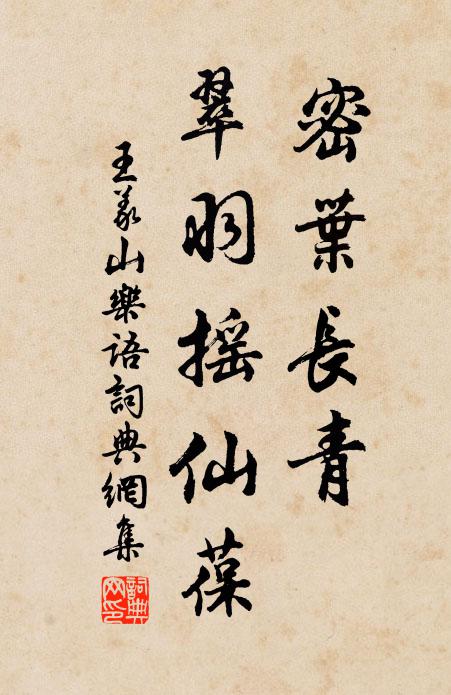 密葉長青
翠羽搖仙葆
王義山樂語詞典網集
詞典網印